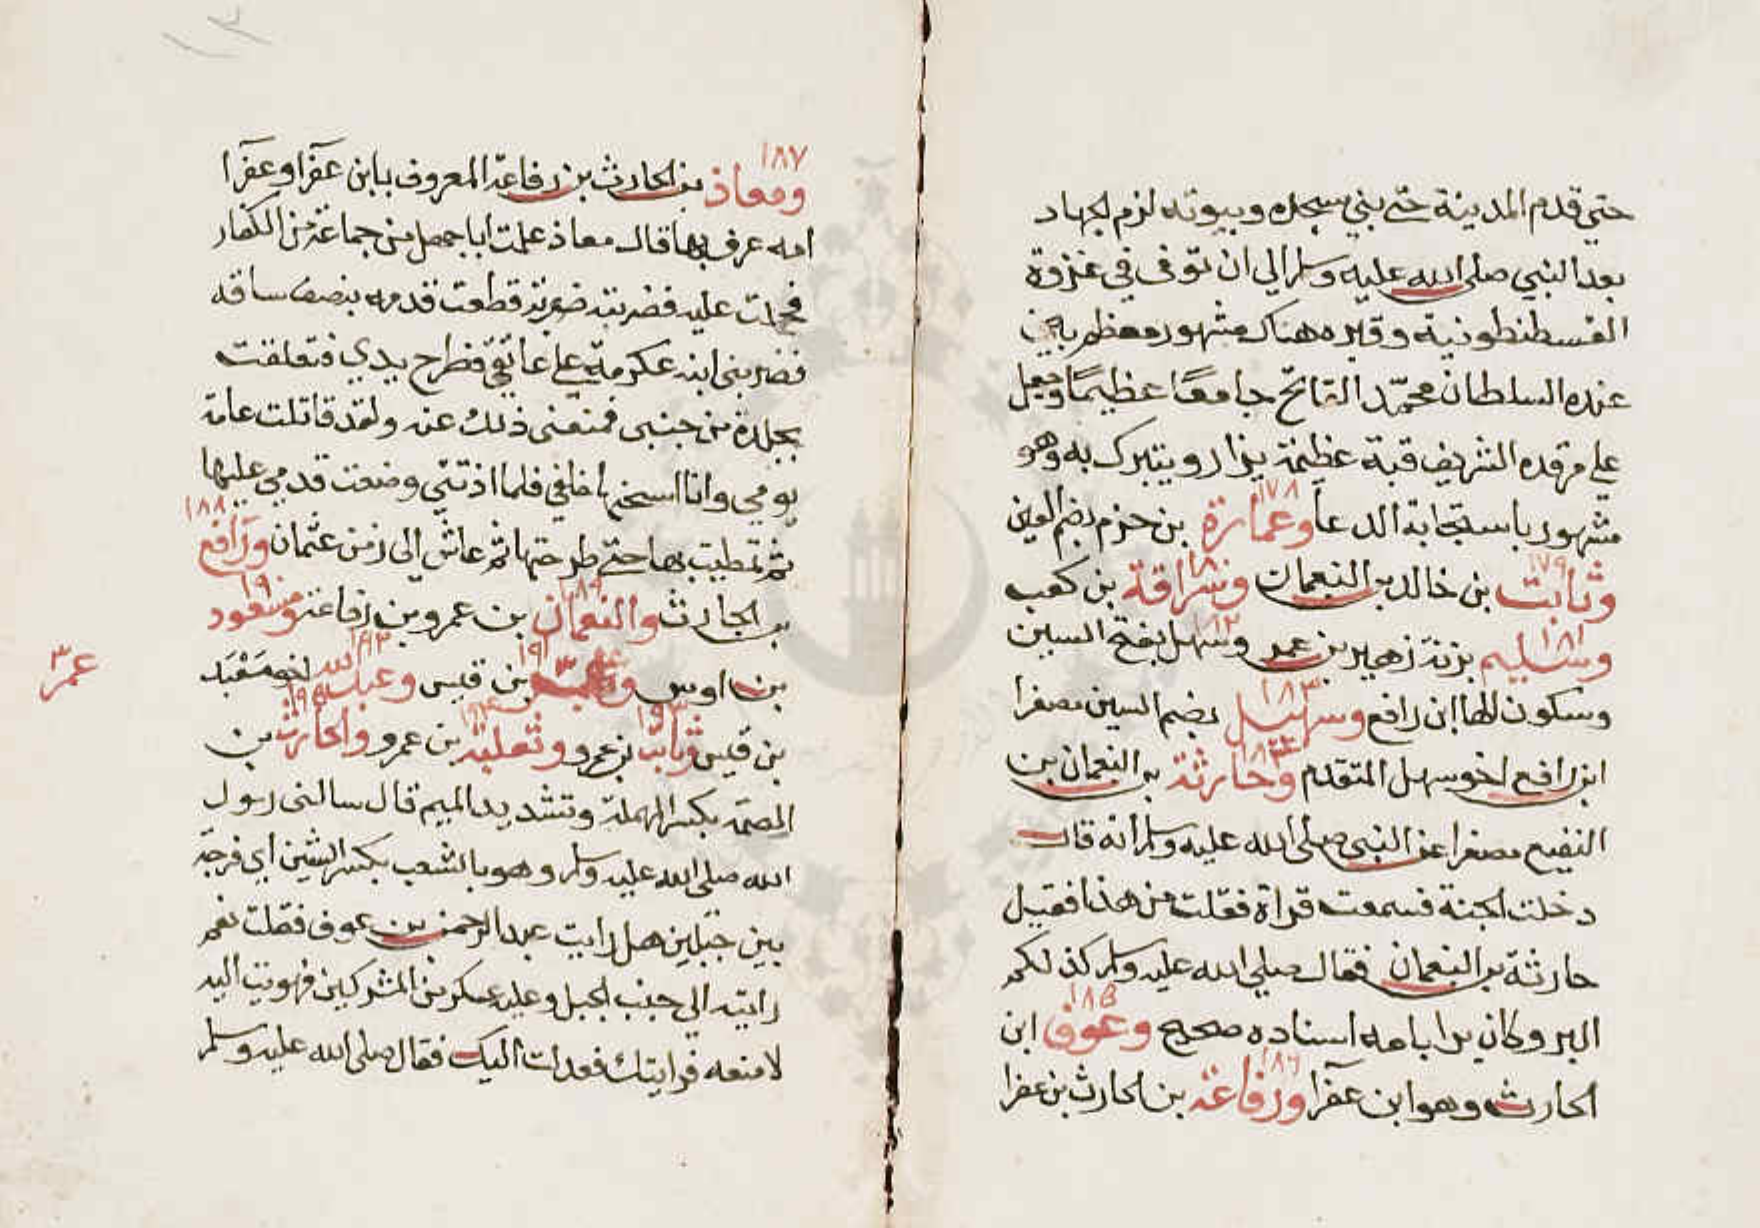 حتي قدم المدينة حتي بني مسجده وبيوته لزم الجهاد
بعد النبي صلي الله عليه وسلم الي ان توفي في غزوة
القسطنطونية وقبره هناك مشهور معظم
عنده السلطان محمد الفاتح جامعا عظيما وجعل
علي مرقده الشريف قبة عظيمة يزار ويتبرك به وهو
مشهور باستجابة الدعا وعمارة ١٧٨ بن حزم بضم العين
وثابت ١٧٩ بن خالد بن النعمان وسراقة بن كعب
وسليم ١٨١ بن زهير بن عمر وسهل ١٨٢ بفتح السين
وسكون الها ابن رافع وسهيل ١٨٣ بضم السين مصغرا
ابن رافع اخو سهل المتقدم وحارثة بن النعمان بن
النفيع مصغرا عن النبي صلي الله عليه وسلم انه قال
دخلت الجنة فسمعت قراة فقلت من هذا فقيل
حارثة بن النعمان فقال صلي الله عليه وسلم كذلكم
البر وكان برا بامه اسناده صحيح وعوف ١٨٥ ابن
الحارث وهو ابن عفرا ورفاعة ١٨٦ بن الحارث بن عفرا
ومعاذ ١٨٧ بن الحارث بن رفاعة المعروف بابن عفرا وعفرا
امه عرف بها قال معاذ علمت ابا جهل من جماعة من الكفار
فحملت عليه فضربته ضربة قطعت قدمه بنصف ساقه
فضربني ابنه عكرمة علي عاتقي فطرح يدي فتعلقت
بجلدة من جنبي فمنعني ذلك عنه ولقد قاتلت عامة
يومي وانا اسحبها خلفي فلما اذتني وضعت قدمي عليها
ثم تمطيت بها حتي طرحتها ثم عاش الي زمن عثمان ورافع ١٨٨
بن الحارث والنعمان ١٨٩ بن عمرو بن رفاعة ومسعود ١٩٠
بن اوس بن قيس وعبد الله ١٩٢ اخو معبد
عمر
بن قيس وثابت ١٩٣ بن عمرو وثعلبة ١٩٤ بن عمرو والحارث ١٩٥ بن
الصمة بكسر المهملة وتشديد الميم قال سالني رسول
الله صلي الله عليه وسلم وهو بالشعب بكسر الشين اي فرجة
بين جبلين هل رايت عبد الرحمن بن عوف فقلت نعم
رايته الي جنب الجبل وعليه عسكر من المشركين فهويت اليه
لامنعه فرايتك فعدلت اليك فقال صلي الله عليه وسلم